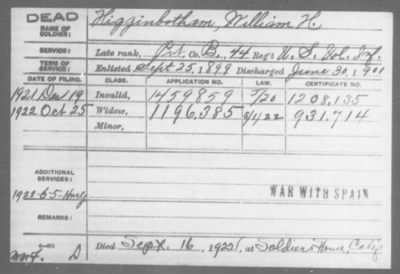 DEAD
NAME OF SOLDIER: Higginbotham, William H.
SERVICE: Late rank, Pvt. Co. B, 44 Reg't U. S. Vol. Inf.
TERM OF SERVICE: Enlisted Sept 25, 1899 Discharged June 30, 1901
DATE OF FILING. CLASS. APPLICATION NO. LAW. CERTIFICATE NO.
1921 Dec 19 Invalid, 1459859 5/20 1208,135
1922 Oct 25 Widow, 1196,385 931,714
Minor,
ADDITIONAL SERVICES:
WAR WITH SPAIN
REMARKS:
Died Sept. 16, 1922, at Soldiers Home, Calif